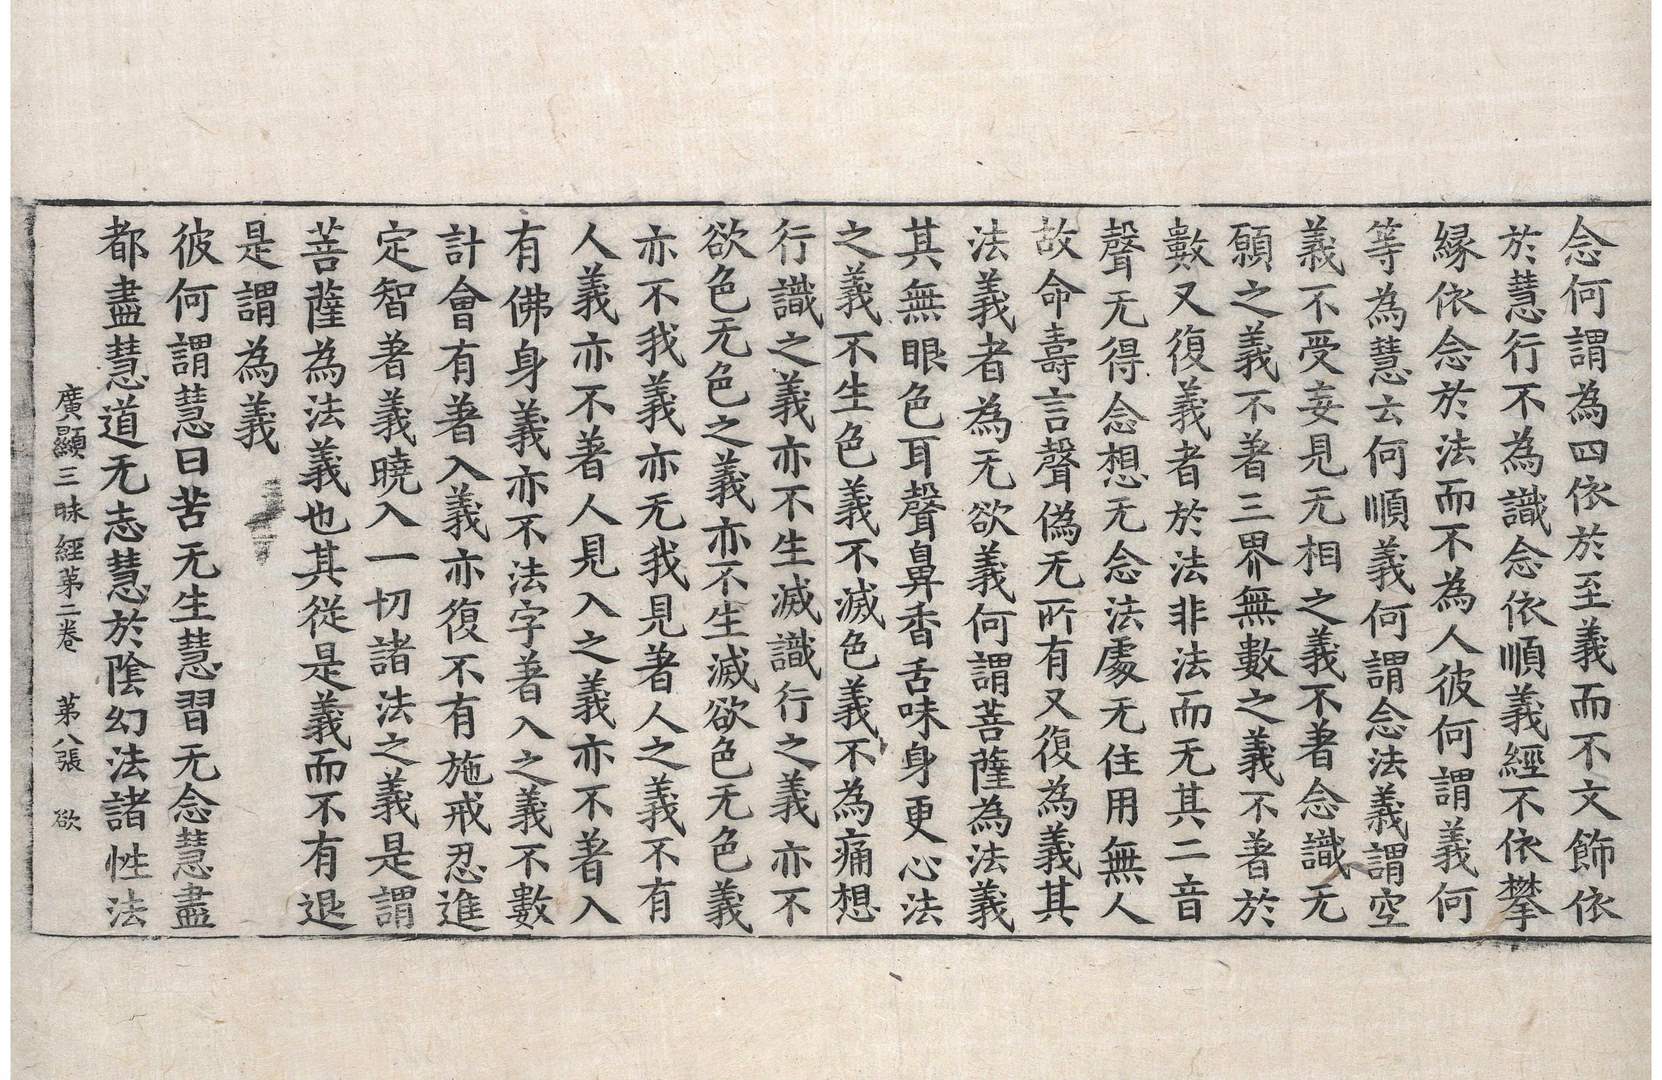 念何謂為四依於至義而不文飾依
於慧行不為識念依順義經不依攀
縁依念於法而不為人彼何謂義何
等為慧云何順義何謂念法義謂空
義不受妄見无相之義不著念識无
願之義不著三界無數之義不著於
數又復義者於法非法而无其二音
聲无得念想无念法處无住用無人
故命壽言聲偽无所有又復為義其
法義者為无欲義何謂菩薩為法義
其無眼色耳聲鼻香舌味身更心法
之義不生色義不滅色義不為痛想
行識之義亦不生滅識行之義亦不
欲色无色之義亦不生滅欲色无色義
亦不我義亦无我見著人之義不有
人義亦不著人見入之義亦不著入
有佛身義亦不法字著入之義不數
計會有著入義亦復不有施戒忍進
定智著義曉入一切諸法之義是謂
菩薩為法義也其從是義而不有退
是謂為義
彼何謂慧曰苦无生慧習无念慧盡
都盡慧道无志慧於陰幻法諸性法
廣顯三昧經苐二卷 苐八張 欲